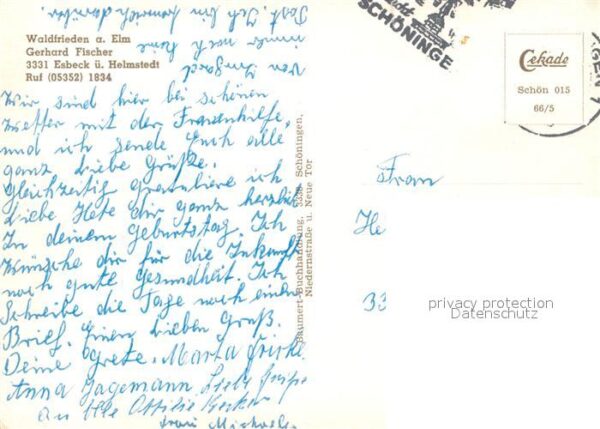 Waldfrieden a. Elm
Gerhard Fischer
3331 Esbeck ü. Helmstedt
Ruf (05352) 1834
Wir sind hier bei schönen
Wetter mit der Frauenhilfe,
und ich sende Euch alle
ganz liebe Grüße.
Gleichzeitig gratuliere ich
liebe Hete dir ganz herzlich
In deinem Geburtstag. Ich
Wünsche dir für die Zukunft
noch gute Gesundheit. Ich
Schreibe die Tage noch einen
Brief. Einen lieben Gruß.
Deine Grete. Marta Fricke
Anna Jagemann Liebe Grüße
an Alle Ottilie Becker
Frau Michaels
von Irmgard
immer noch keine
Post. Ich bin darüber
Baumert-Buchhandlung, 3338 Schöningen,
Niedernstraße u. Neue Tor
SCHÖNINGE
Cekade
Schön 015
66/5
GEN 1
Frau
He
33
privacy protection
Datenschutz